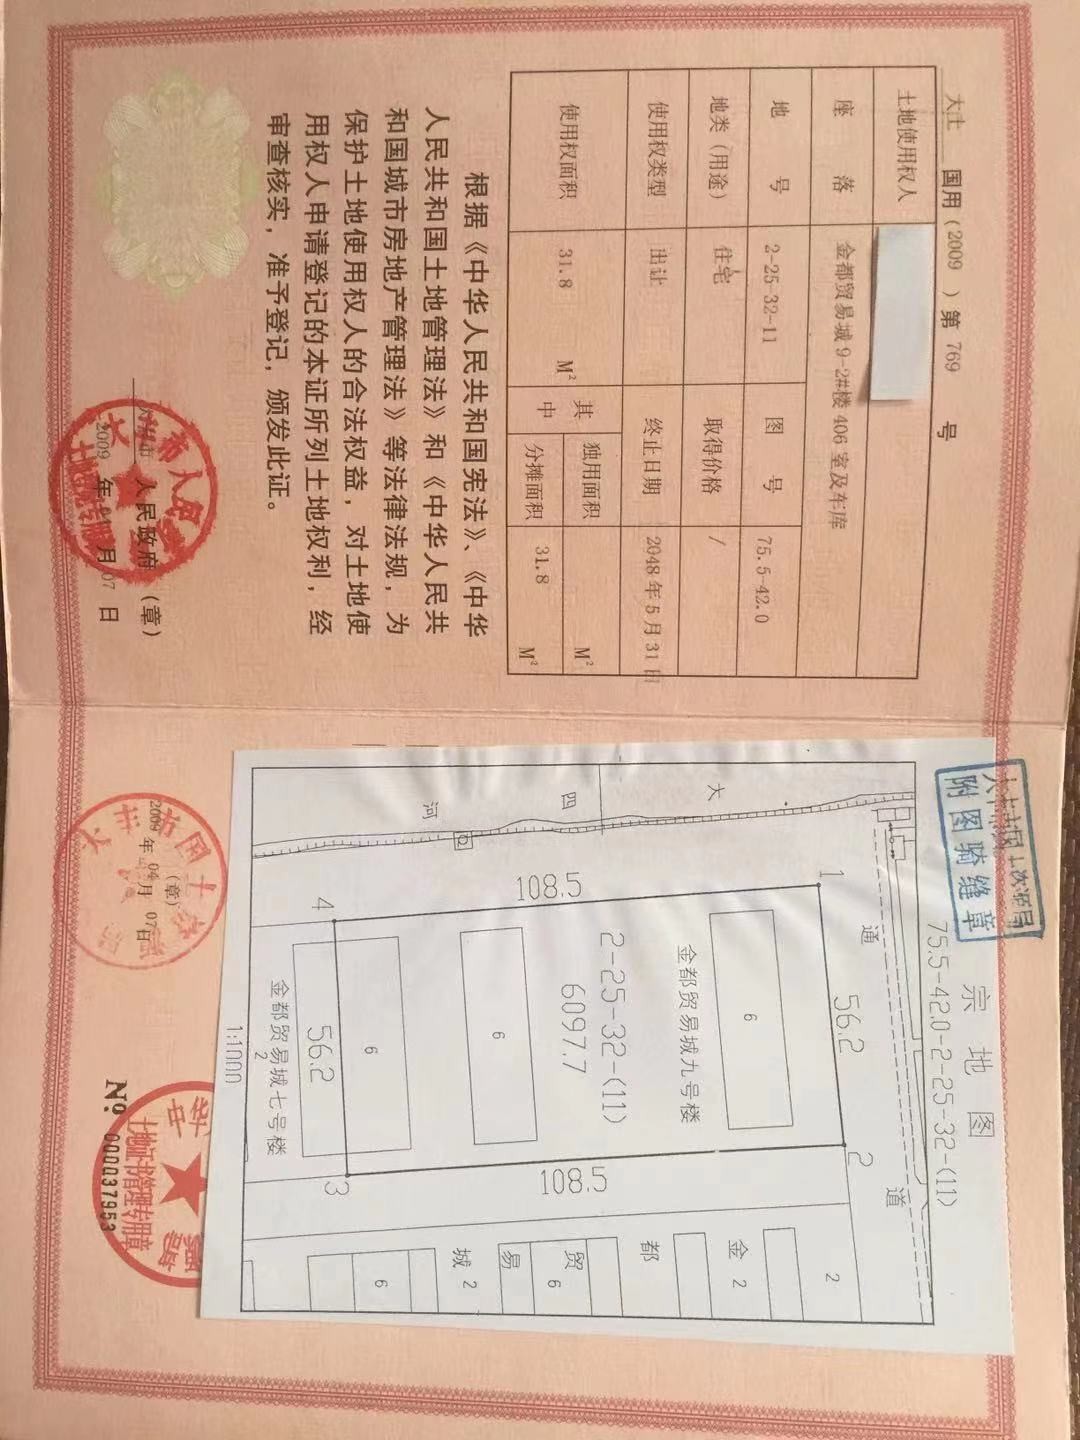 大土 国用（2009 ）第 769 号
土地使用权人
座 落 金都贸易城9-2#楼406室及车库
地 号 2-25-32-11 图 号 75.5-42.0
地类（用途） 住宅 取得价格 /
使用权类型 出让 终止日期 2048年5月31日
使用权面积 31.8 M² 其中 独用面积 M²
分摊面积 31.8 M²
根据《中华人民共和国宪法》、《中华
人民共和国土地管理法》和《中华人民共
和国城市房地产管理法》等法律法规，为
保护土地使用权人的合法权益，对土地使
用权人申请登记的本证所列土地权利，经
审查核实，准予登记，颁发此证。
人民政府（章）
2009 年 04 月 07 日
附图骑缝章
宗 地 图
75.5-42.0-2-25-32-(11)
通 道
大 四 河
1
56.2
2
108.5
金都贸易城九号楼
6
2-25-32-(11)
6097.7
6
108.5
6
4
56.2
3
金都贸易城七号楼
2
金 都 贸 易 城
2
2
6
2
6
1:1000
（章）
2009 年 04 月 07 日
土地证书管理专用章
№ 000037953